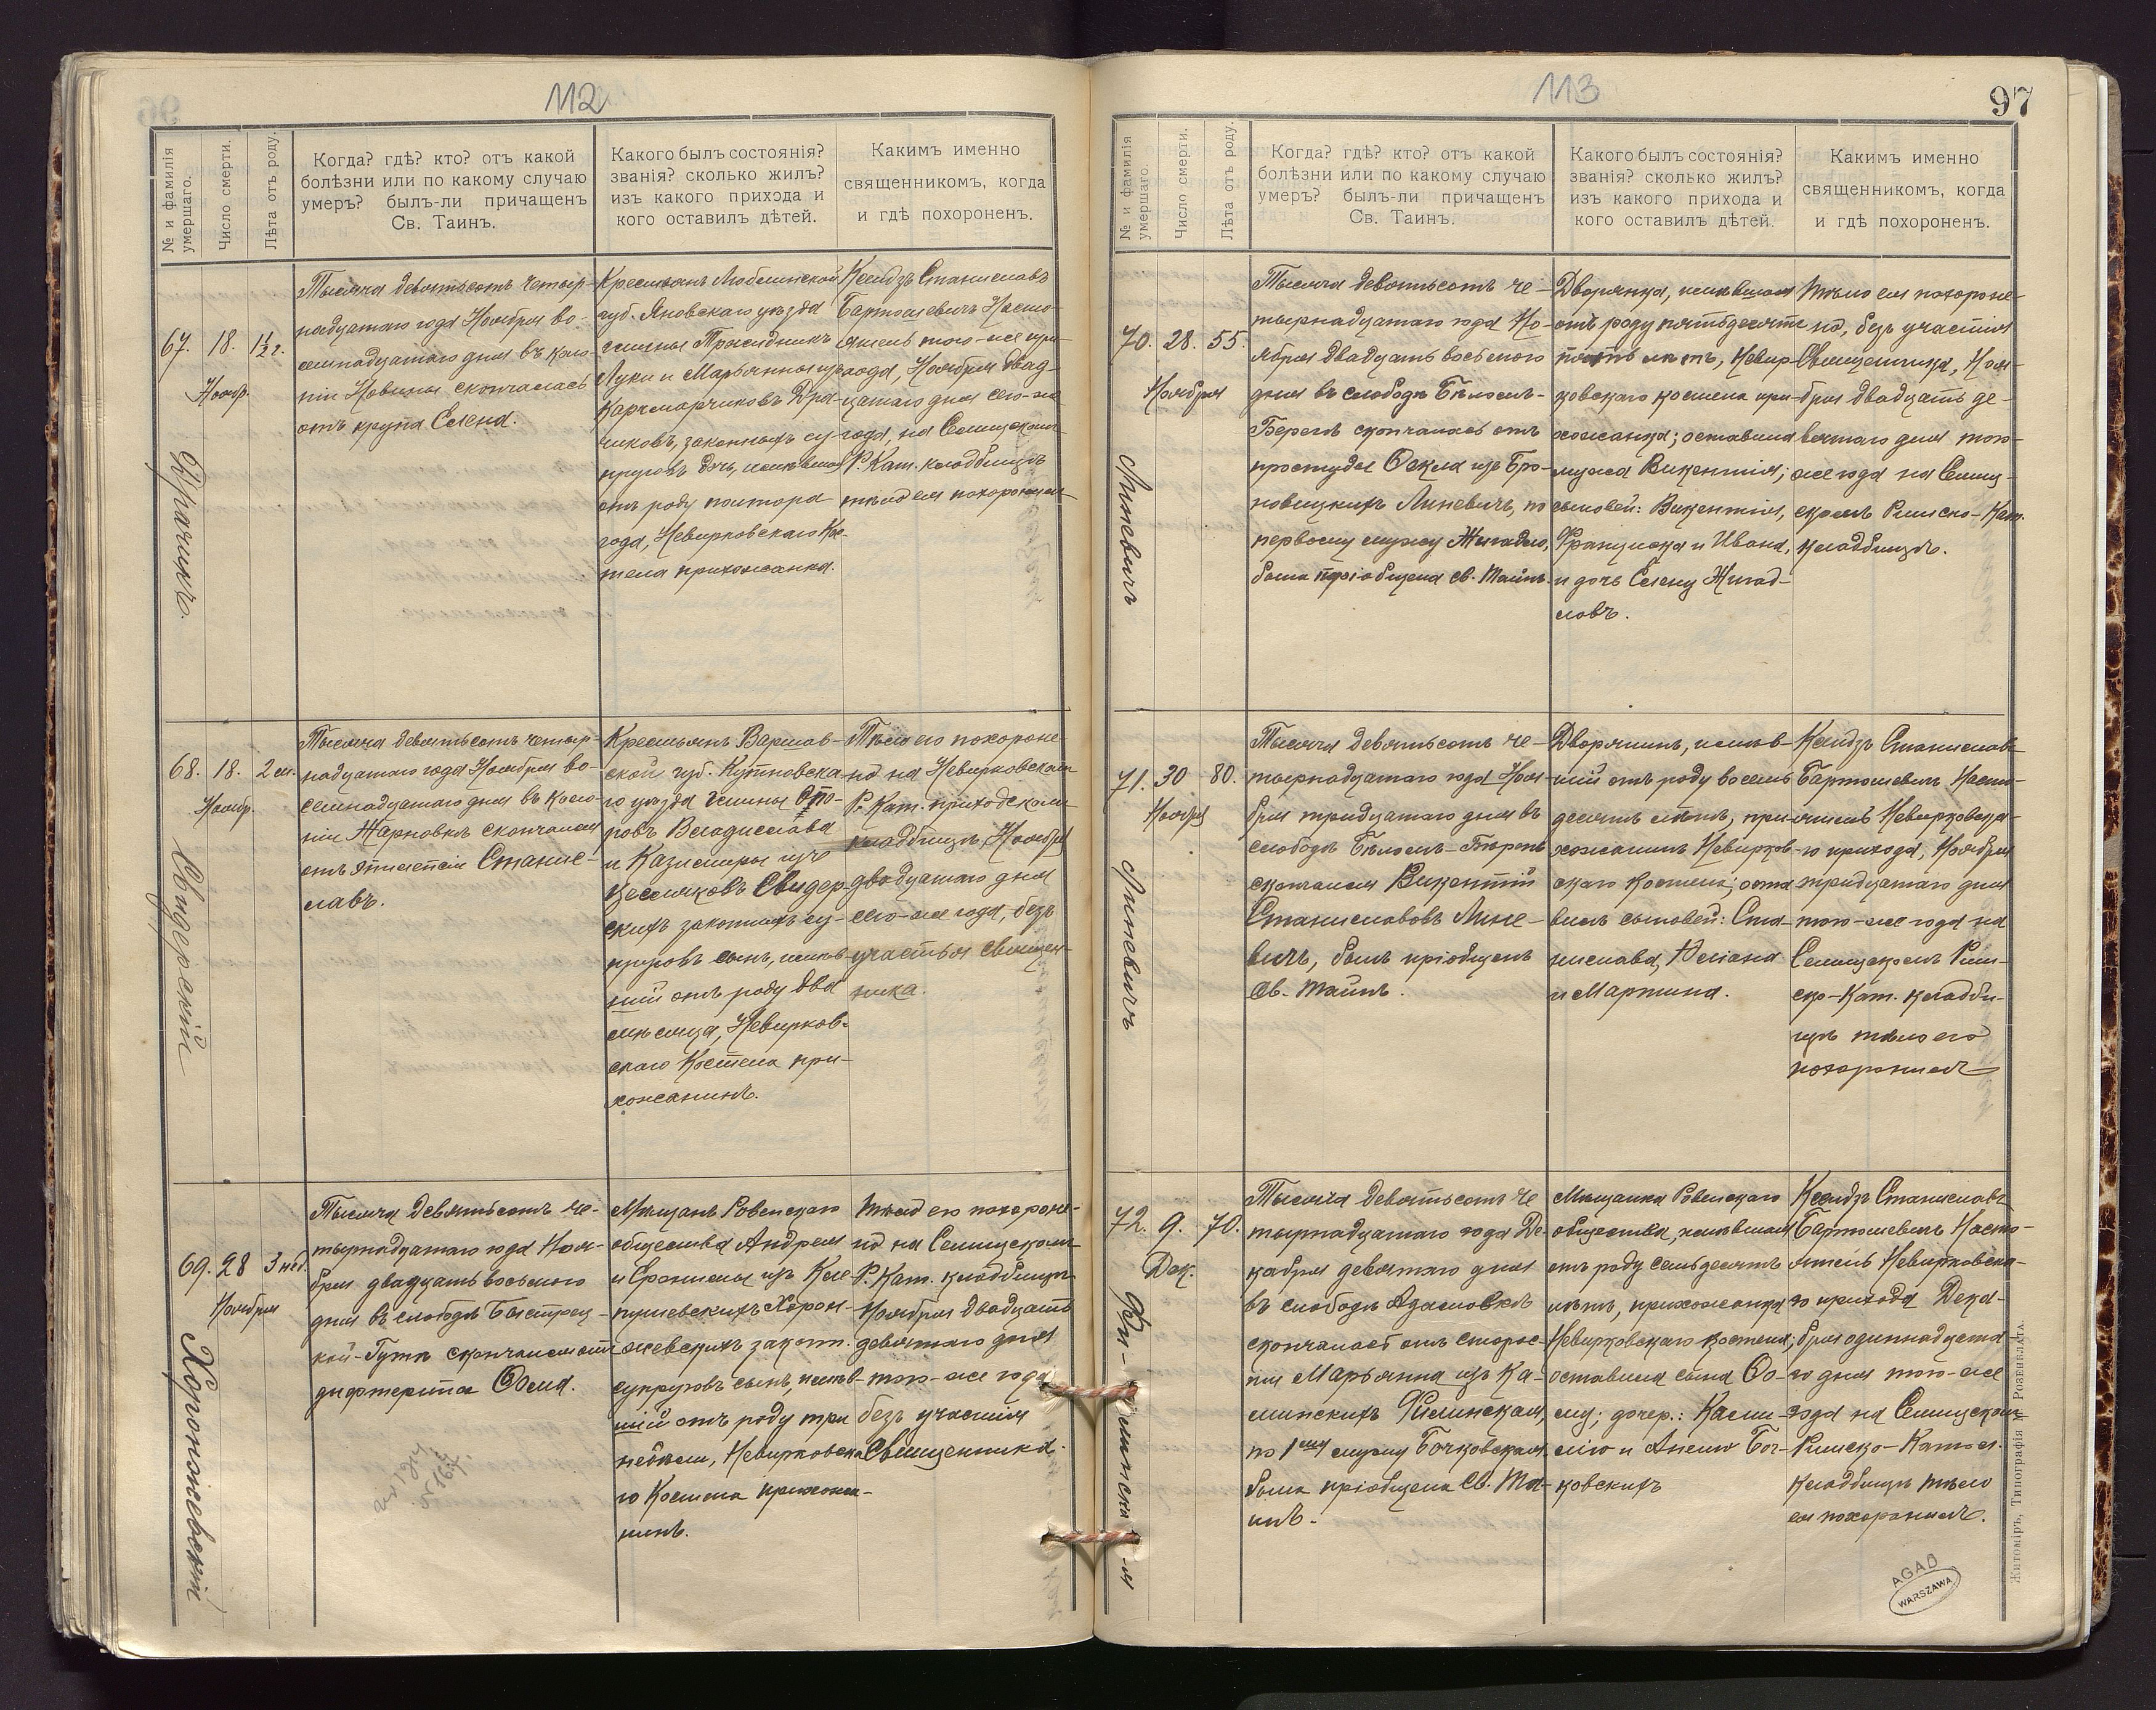 112
№ и фамилія умершаго.
Число смерти.
Лѣта отъ роду.
Когда? гдѣ? кто? отъ какой
болѣзни или по какому случаю
умеръ? былъ-ли причащенъ
Св. Таинъ.
Какого былъ состоянія?
званія? сколько жилъ?
изъ какого прихода и
кого оставилъ дѣтей.
Какимъ именно
священникомъ, когда
и гдѣ похороненъ.
67. 18. 1½ г.
Ноябр.
Драчикъ.
Тысяча девятьсотъ четыр-
надцатаго года Ноября во-
семнадцатаго дня въ коло-
ніи Новины скончалась
отъ крупа Селена.
Крестьянъ Люблинской
губ. Яновскаго уѣзда
гмины
Луки и Марьянны изъ
Карчмарчиковъ Дра-
чиковъ, законныхъ су-
пруговъ дочь, имѣвшая
отъ роду полтора
года, Невирковскаго Ко-
стела прихожанка.
Ксендзъ Станиславъ
Бартошевичъ Насто-
ятель того-же при-
хода, Ноября двад-
цатаго дня сего-же
года, на Селищскомъ
Р. Кат. кладбищѣ
тѣло ея похоронилъ
68. 18. 2 м.
Ноябр.
Свидерскій
Тысяча девятьсотъ четыр-
надцатаго года Ноября во-
семнадцатаго дня въ коло-
ніи Жарновкѣ скончался
отъ эпилепсіи Станис-
лавъ.
Крестьянъ Варшав-
ской губ. Кутновска-
го уѣзда гмины
Владислава
и Казимиры изъ
Цесляковъ Свидер-
скихъ законныхъ су-
пруговъ сынъ, имѣв-
шій отъ роду два
мѣсяца, Невирков-
скаго Костела при-
хожанинъ.
Тѣло его похороне-
но на Невирковскомъ
Р. Кат. приходскомъ
кладбищѣ, Ноября
двадцатаго дня
сего-же года, безъ
участья священ-
ника.
69. 28 3 нед.
Ноября
Хоронжевскій
Тысяча девятьсотъ че-
тырнадцатаго года Ноя-
бря двадцать восьмого
дня въ слободѣ Быстрец-
кой-Гутѣ скончался отъ
дифтерита Ѳома.
Мѣщанъ Ровенскаго
общества Андрея
и Франимы изъ Кле-
пушевскихъ Хорон-
жевскихъ закон.
супруговъ сынъ, имѣв-
шій отъ роду три
недѣли, Невирковска-
го Костела прихожа-
нинъ.
Тѣло его похороне-
но на Селищскомъ
Р. Кат. кладбищѣ
Ноября двадцать
девятаго дня
того-же года
безъ участія
Священника.
113
97
№ и фамилія умершаго.
Число смерти.
Лѣта отъ роду.
Когда? гдѣ? кто? отъ какой
болѣзни или по какому случаю
умеръ? былъ-ли причащенъ
Св. Таинъ.
Какого былъ состоянія?
званія? сколько жилъ?
изъ какого прихода и
кого оставилъ дѣтей.
Какимъ именно
священникомъ, когда
и гдѣ похороненъ.
70. 28. 55.
Ноября
Линевичъ
Тысяча девятьсотъ че-
тырнадцатаго года Но-
ября двадцать восьмого
дня въ слободѣ Бѣломъ-
Берегѣ скончалась отъ
простуды Ѳекла изъ Бро-
новицкихъ Линевичъ, по
первому мужу Жигадло,
была пріобщена св. Таинъ.
Дворянка, имѣвшая
отъ роду пятьдесятъ
пять лѣтъ, Невир-
ковскаго костела при-
хожанка; оставила
мужа Викентія;
сыновей: Викентія,
Франциска и Ивана,
и дочь Селену Жигад-
ловъ.
Тѣло ея похороне-
но, безъ участія
Священника, Ноя-
бря двадцать де-
вятаго дня того-
же года на Селищ-
скомъ Римско-Кат.
кладбищѣ.
71. 30 80.
Ноября
Линевичъ
Тысяча девятьсотъ че-
тырнадцатаго года Ноя-
бря тридцатаго дня въ
слободѣ Бѣломъ-Берегѣ
скончался Викентій
Станиславовъ Лине-
вичъ, былъ пріобщенъ
Св. Таинъ.
Дворянинъ, имѣв-
шій отъ роду восемь
десятъ лѣтъ, при-
хожанинъ Невирков-
скаго Костела; оста-
вилъ сыновей: Ста-
нислава, Юліана
и Мартина.
Ксендзъ Станиславъ
Бартошевичъ Насто-
ятель Невирковска-
го прихода, Ноября
тридцатаго дня
того-же года на
Селищскомъ Рим-
ско-Кат. кладби-
щѣ тѣло его
похоронилъ
72. 9. 70.
Дек.
Филинская
Тысяча девятьсотъ че
тырнадцатаго года Де-
кабря девятаго дня
въ слободѣ Адамовкѣ
скончалась отъ старос-
ти Марьянна изъ Ка-
минскихъ Филинская,
по 1ому мужу Бочковская,
была пріобщена Св. Та-
инъ.
Мѣщанка Ровенскаго
общества, имѣвшая
отъ роду семьдесятъ
лѣтъ, прихожанка
Невирковскаго костела;
оставила сына Ѳо-
му; дочер.:
и Анелю Боч-
ковскихъ
Ксендзъ Станиславъ
Бартошевичъ Насто-
ятель Невирковска-
го прихода Дека-
бря одиннадцата-
го дня того-же
года на Селищскомъ
Римско-Катол.
кладбищѣ тѣло
ея похоронилъ.
AGAD
WARSZAWA
Житоміръ, Типографія Розенблата